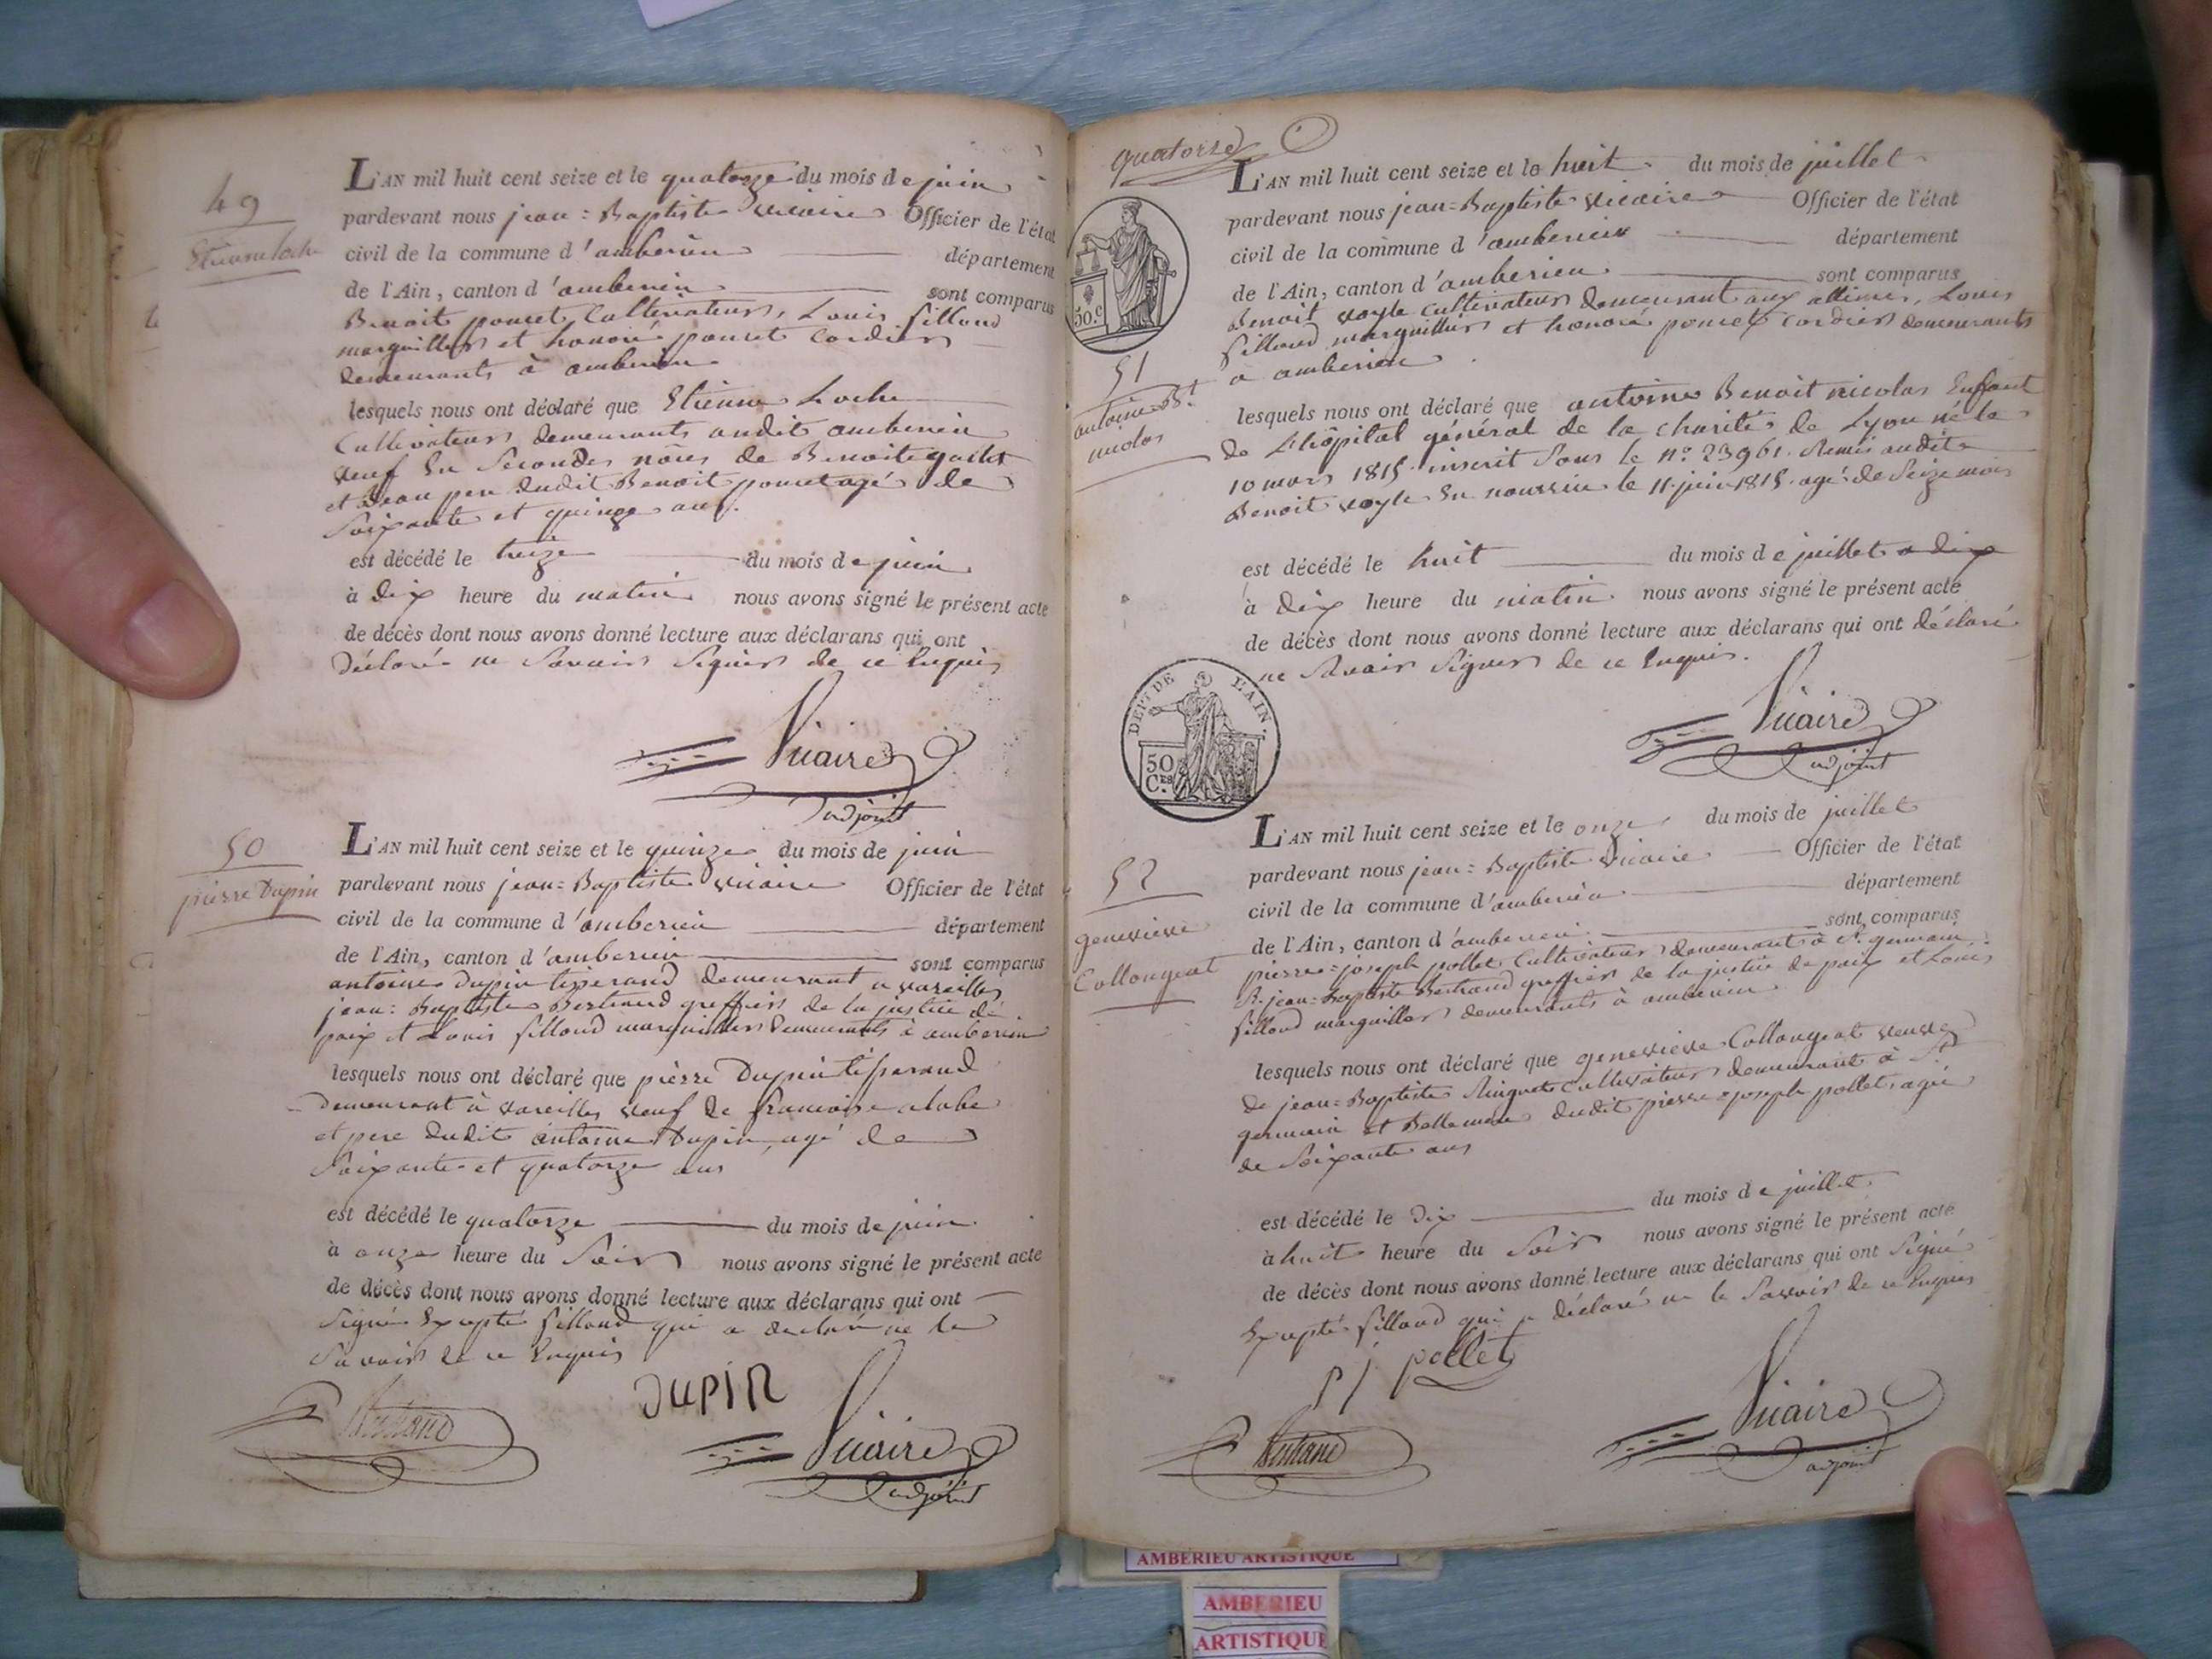 49
Etienne Loche
L'AN mil huit cent seize et le quatorze du mois de juin
pardevant nous jean=Baptiste vicaire Officier de l'état
civil de la commune d'amberieu département
de l'Ain, canton d'amberieu sont comparus
Benoit poncet Cultivateur, Louis filloud
marguiller et honoré poncet Cordier
demeurants à amberieu
lesquels nous ont déclaré que Etienne Loche
Cultivateur demeurants audit amberieu
veuf En Secondes noces de Benoite
et Beau pere dudit Benoit poncet agé de
Soixante et quinze ans.
est décédé le treize du mois de juin
à dix heure du matin nous avons signé le présent acte
de décès dont nous avons donné lecture aux déclarans qui ont
Déclaré ne Savoir Signer de ce Enquis
Vicaire
adjoint
50
pierre Dupin
L'AN mil huit cent seize et le quinze du mois de juin
pardevant nous jean=Baptiste vicaire Officier de l'état
civil de la commune d'amberieu département
de l'Ain, canton d'amberieu sont comparus
antoine Dupin tisserand demeurant a vareilles
jean=Baptiste Bertrand greffier de la justice de
paix et Louis filloud marguiller demeurants à amberieu
lesquels nous ont déclaré que pierre Dupin tisserand
demeurant à vareilles veuf de francoise
et pere dudit antoine Dupin, agé de
Soixante et quatorze ans
est décédé le quatorze du mois de juin
à onze heure du Soir nous avons signé le présent acte
de décès dont nous avons donné lecture aux déclarans qui ont
Signé Excepté filloud qui a déclaré ne le
Savoir de ce Enquis
Bertrand
DUPIN
Vicaire
adjoint
quatorze
50.c
51
antoine Bt.
nicolas
L'AN mil huit cent seize et le huit du mois de juillet
pardevant nous jean=Baptiste vicaire Officier de l'état
civil de la commune d'amberieu département
de l'Ain, canton d'amberieu sont comparus
Benoit vayle Cultivateur demeurant aux allimes, Louis
filloud marguillier et honoré poncet Cordier demeurants
a amberieu
lesquels nous ont déclaré que antoine Benoit nicolas Enffant
de L'hôpital général de la charité de Lyon né le
10 mars 1815 inscrit Sous le n° 23961. Remis audit
Benoit vayle En nourrice le 11 juin 1815. agé de Seize mois
est décédé le huit du mois de juillet a dix
à dix heure du matin nous avons signé le présent acte
de décès dont nous avons donné lecture aux déclarans qui ont déclaré
ne Savoir Signer de ce Enquis.
Vicaire
adjoint
DEPT DE L'AIN.
50
C.ES
52
genevieve
Collongeat
L'AN mil huit cent seize et le onze du mois de juillet
pardevant nous jean=Baptiste vicaire Officier de l'état
civil de la commune d'amberieu département
de l'Ain, canton d'amberieu sont comparus
pierre=joseph pollet Cultivateur demeurant à St. germain
Sr. jean=Baptiste Bertrand greffier de la justice de paix et Louis
filloud marguiller demeurants à amberieu
lesquels nous ont déclaré que genevieve Collongeat veuve
de jean=Baptiste Cultivateur demeurant à St.
germain et Belle mere dudit pierre=joseph pollet, agée
de Soixante ans
est décédé le dix du mois de juillet
à huit heure du Soir nous avons signé le présent acte
de décès dont nous avons donné lecture aux déclarans qui ont Signé
Excepté filloud qui a déclaré ne le Savoir de ce Enquis
pj pollet
Bertrand
Vicaire
adjoint
AMBERIEU ARTISTIQUE
AMBERIEU
ARTISTIQUE